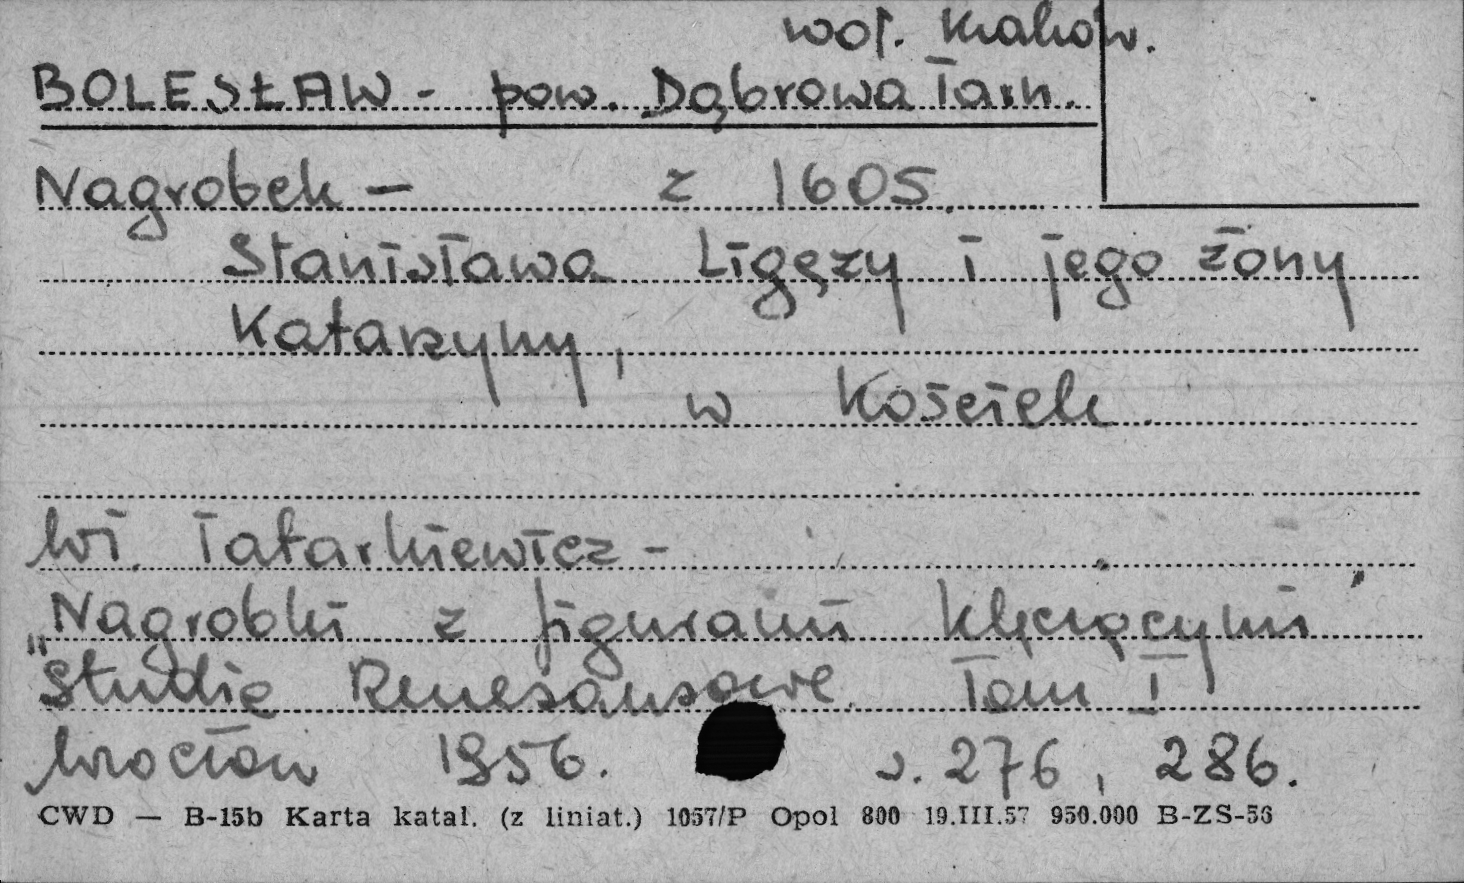 woj. Kraków.
BOLESŁAW - pow. Dąbrowa Tarn.
Nagrobek — z 1605.
Stanisława Ligęzy i jego żony
Katarzyny,
w Kościele.
Wł. Tatarkiewicz -
„Nagrobki z figurami klęczącymi”
Studia Renesansowe. Tom I
Wrocław 1956. s. 276, 286.
CWD — B-15b Karta katal. (z liniat.) 1057/P Opol 800 19.III.57 950.000 B-ZS-56